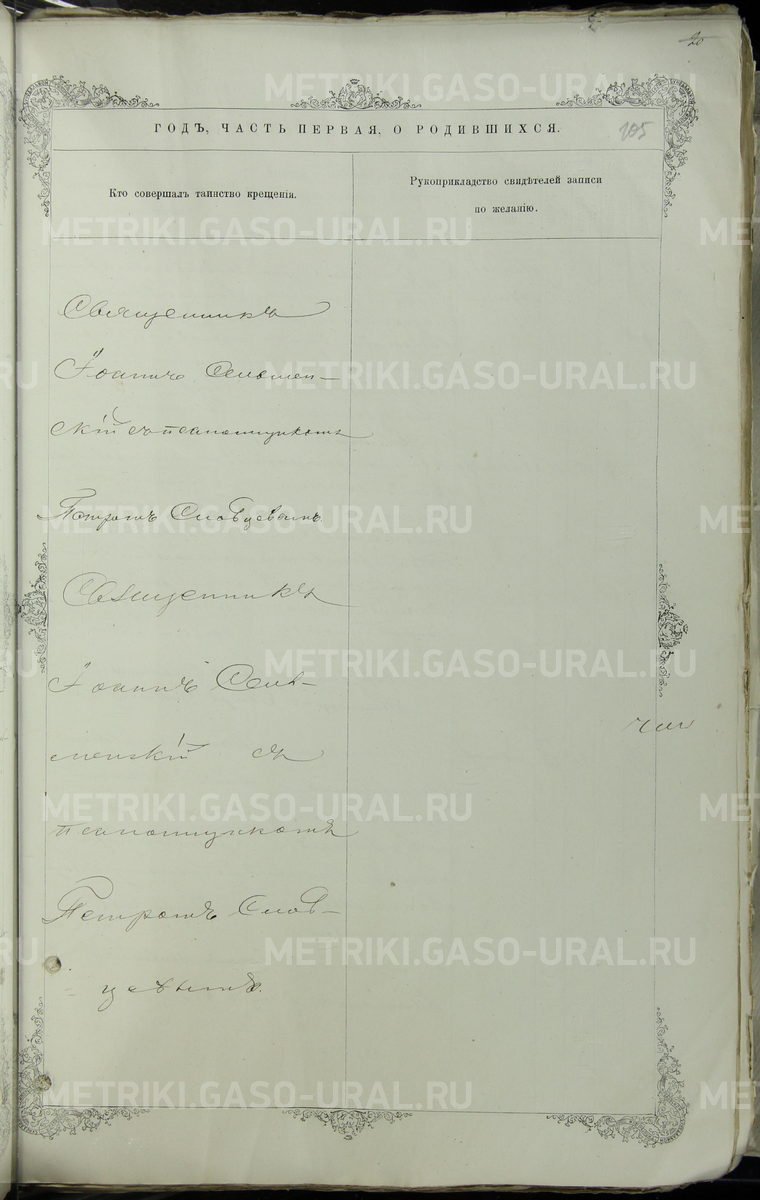 20
105
ГОДЪ, ЧАСТЬ ПЕРВАЯ, О РОДИВШИХСЯ.
Кто совершалъ таинство крещенія.
Рукоприкладство свидѣтелей записи
по желанію.
Священникъ
Іоаннъ
скій съ псаломщикомъ
Петромъ Словцевымъ
Священникъ
Іоаннъ
менскій съ
псаломщикомъ
Петромъ Слов-
цевымъ.
METRIKI.GASO-URAL.RU